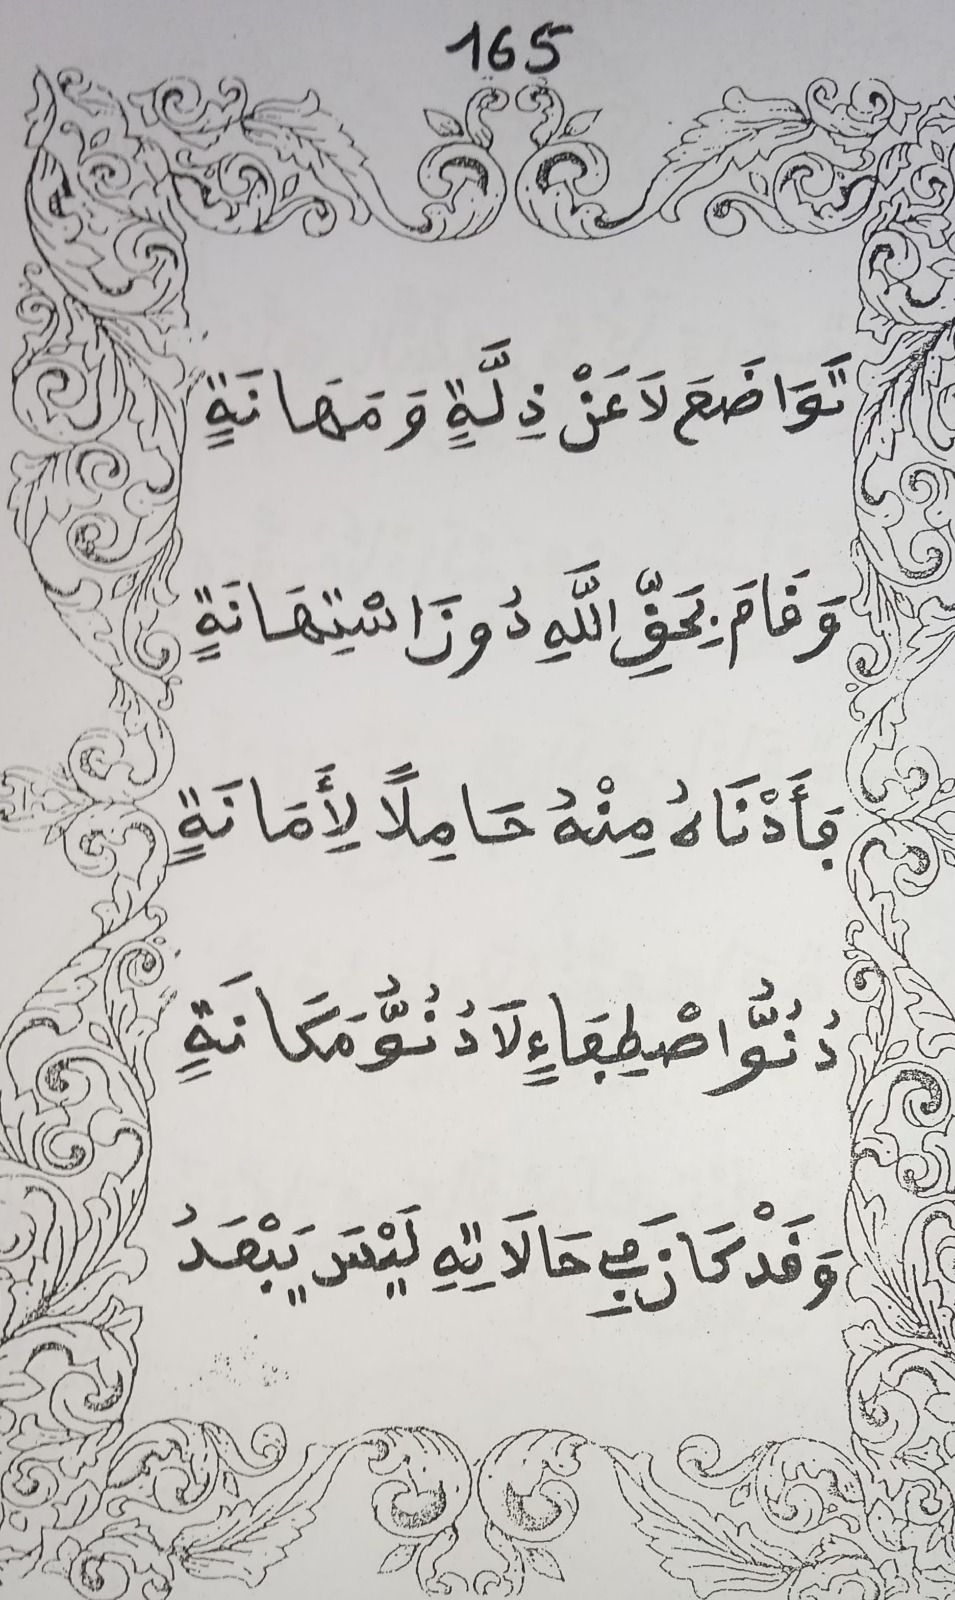 165
تَوَاضَعَ لَا عَنْ ذِلَّةٍ وَمَهَانَةٍ
وَقَامَ بِحَقِّ اللَّهِ دُونَ اسْتِهَانَةٍ
فَأَدْنَاهُ مِنْهُ حَامِلًا لِأَمَانَةٍ
دُنُوَّ اصْطِفَاءٍ لَا دُنُوَّ مَكَانَةٍ
وَقَدْ كَانَ فِي حَالَاتِهِ لَيْسَ يَبْعَدُ